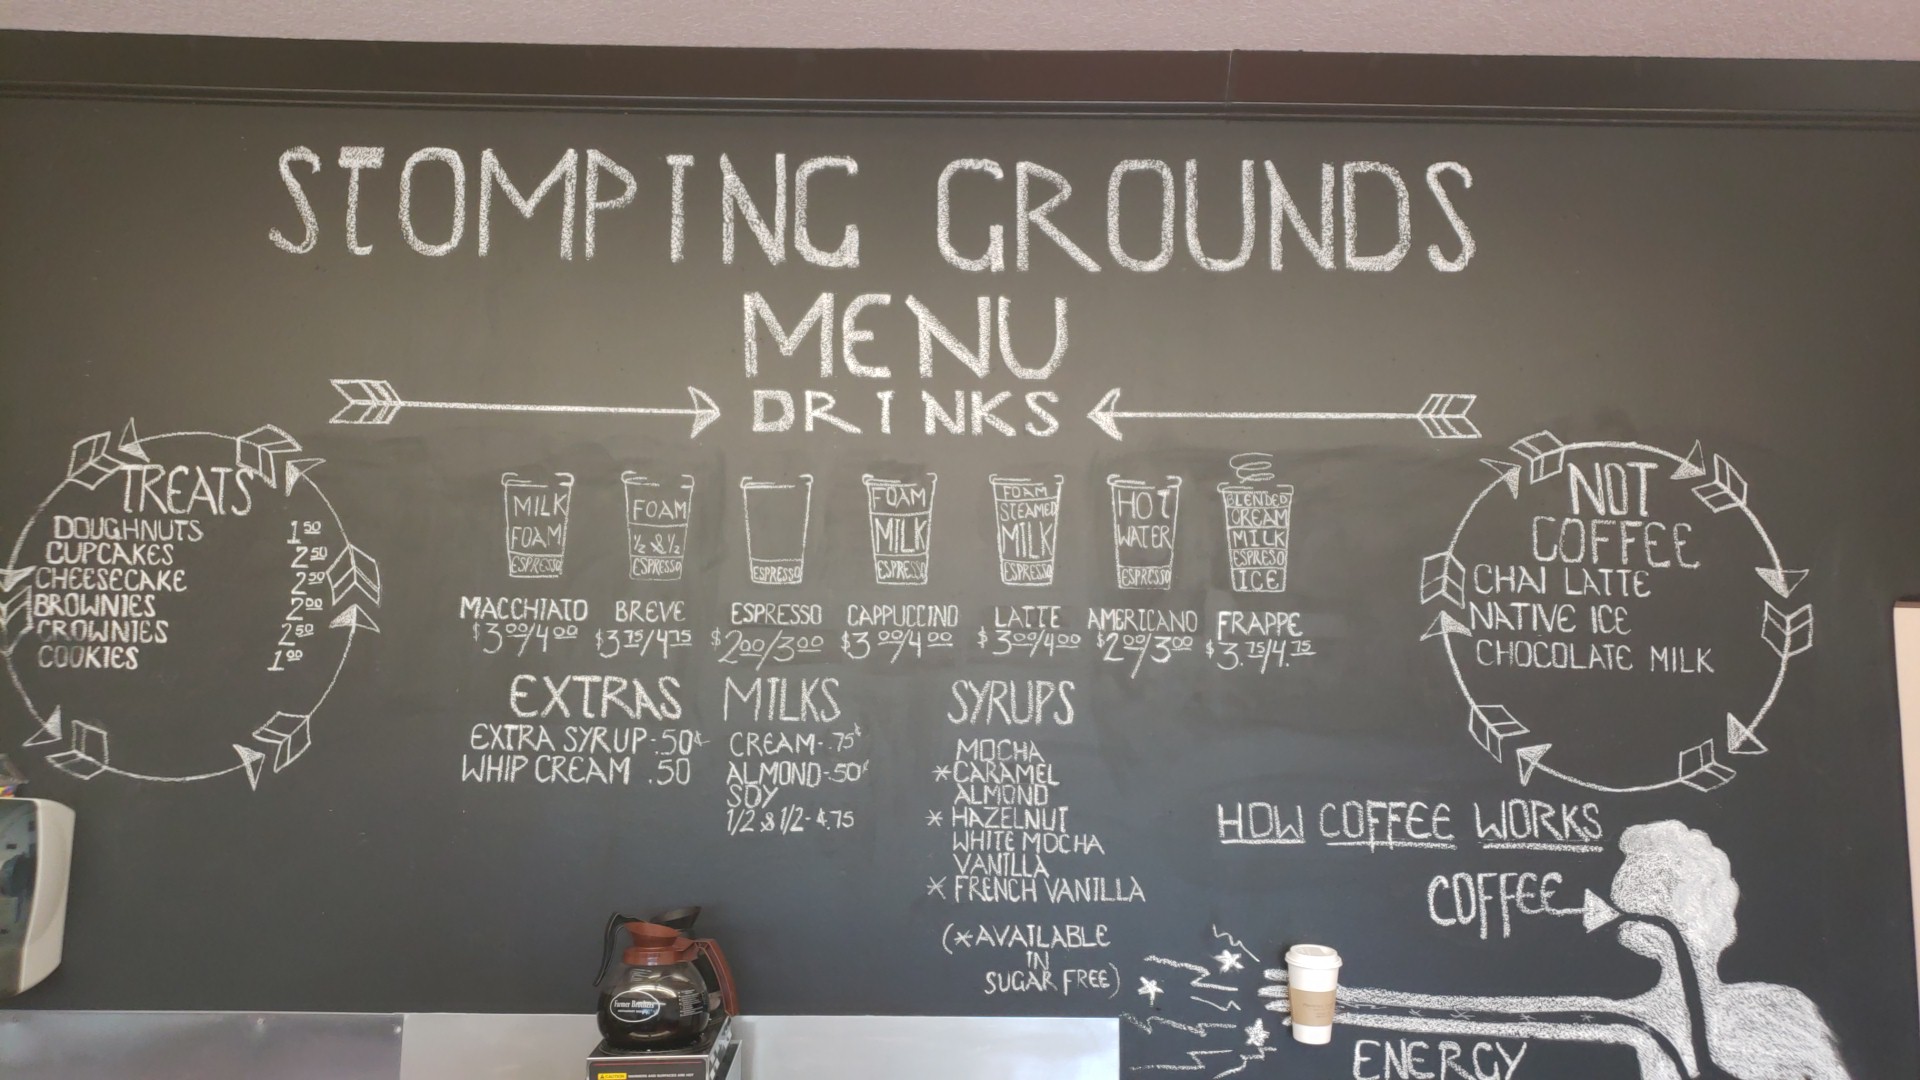 STOMPING GROUNDS
MENU
DRINKS
TREATS
DOUGHNUTS 1.50
CUPCAKES 2.50
CHEESECAKE 2.50
BROWNIES 2.00
CROWNIES 2.50
COOKIES 1.00
MILK
FOAM
ESPRESSO
MACCHIATO
$3.00/4.00
FOAM
½ & ½
ESPRESSO
BREVE
$3.75/4.75
ESPRESSO
ESPRESSO
$2.00/3.00
FOAM
MILK
ESPRESSO
CAPPUCCINO
$3.00/4.00
FOAM
STEAMED
MILK
ESPRESSO
LATTE
$3.00/4.00
HOT
WATER
ESPRESSO
AMERICANO
$2.00/3.00
BLENDED
CREAM
MILK
ESPRESO
ICE
FRAPPE
$3.75/4.75
NOT
COFFEE
CHAI LATTE
NATIVE ICE
CHOCOLATE MILK
EXTRAS
EXTRA SYRUP-.50¢
WHIP CREAM .50
MILKS
CREAM-.75¢
ALMOND-.50¢
SOY
1/2 & 1/2-$.75
SYRUPS
MOCHA
*CARAMEL
ALMOND
*HAZELNUT
WHITE MOCHA
VANILLA
*FRENCH VANILLA
(*AVAILABLE
IN
SUGAR FREE)
HOW COFFEE WORKS
COFFEE
ENERGY
Farmer Brothers
CAUTION